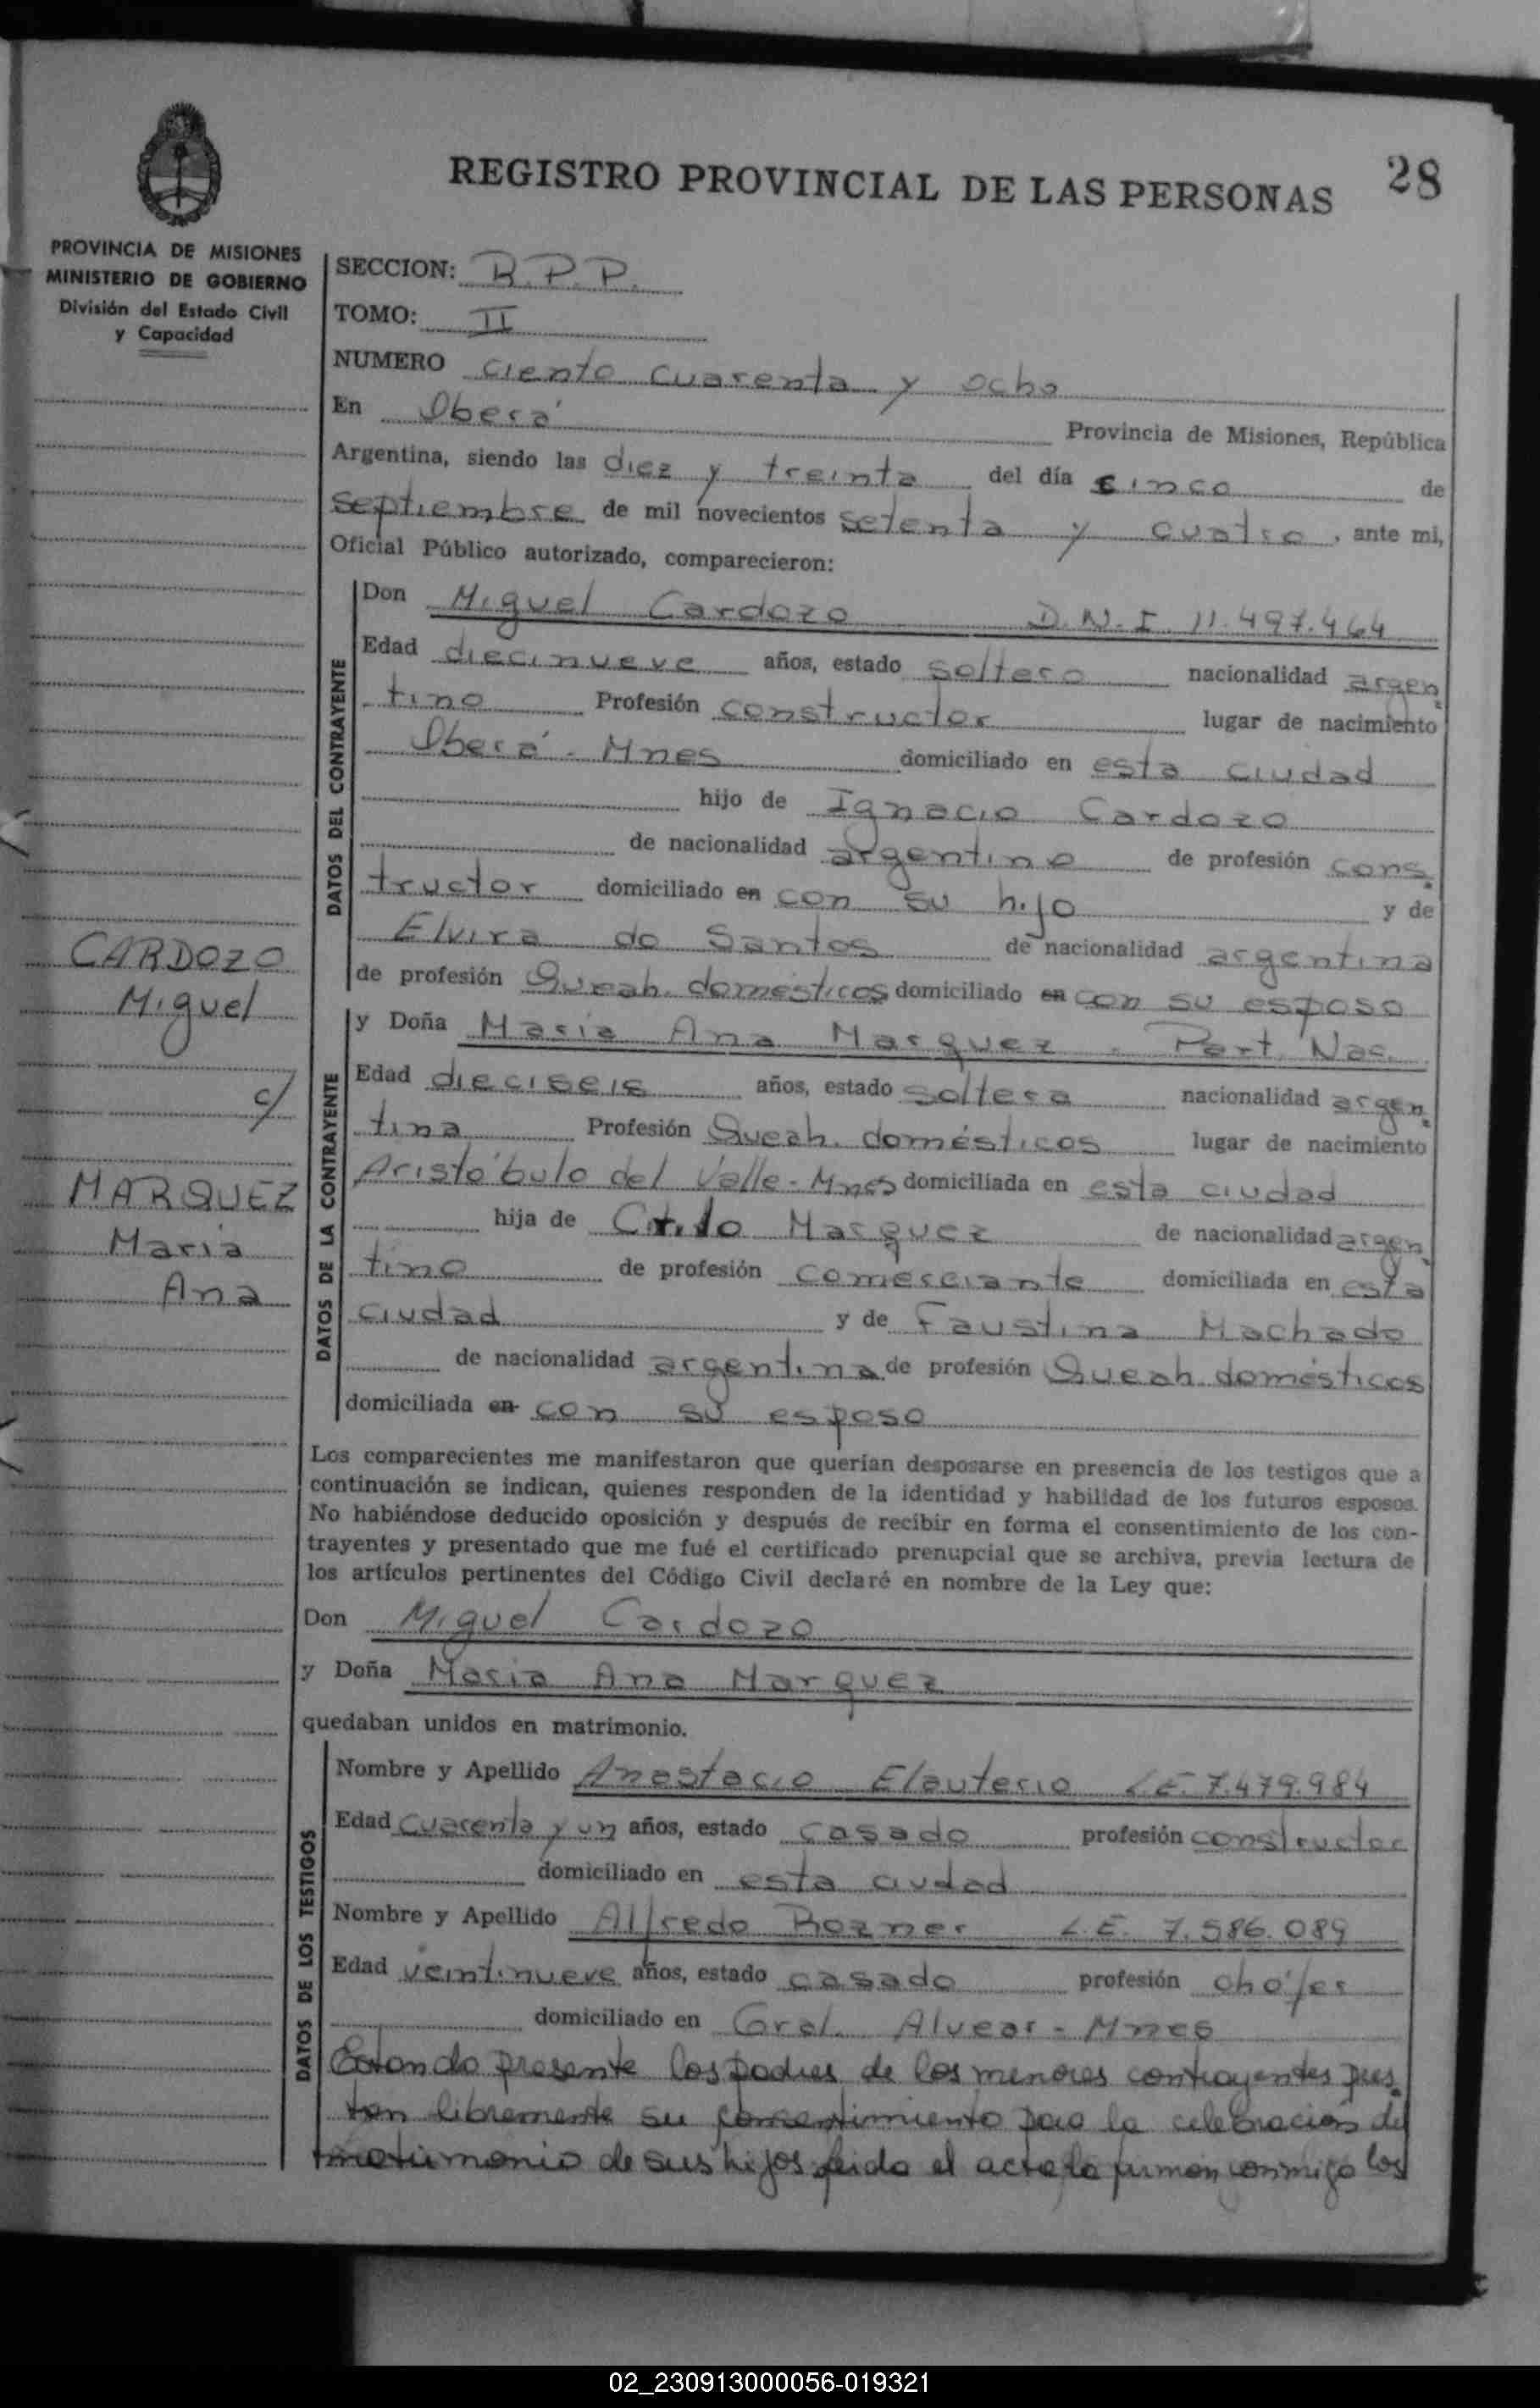 REGISTRO PROVINCIAL DE LAS PERSONAS
28
PROVINCIA DE MISIONES
MINISTERIO DE GOBIERNO
División del Estado Civil
y Capacidad
SECCION: R.P.P.
TOMO: II
NUMERO ciento cuarenta y ocho
En Oberá Provincia de Misiones, República
Argentina, siendo las diez y treinta del día cinco de
septiembre de mil novecientos setenta y cuatro, ante mi,
Oficial Público autorizado, comparecieron:
DATOS DEL CONTRAYENTE
Don Miguel Cardozo D.N.I 11.497.464
Edad diecinueve años, estado soltero nacionalidad argen
tino Profesión constructor lugar de nacimiento
Oberá - Mnes domiciliado en esta ciudad
hijo de Ignacio Cardozo
de nacionalidad argentino de profesión cons
tructor domiciliado en con su hijo y de
Elvira do Santos de nacionalidad argentina
de profesión Queah. domésticos domiciliado en con su esposo
CARDOZO
Miguel
c/
MARQUEZ
Maria
Ana
DATOS DE LA CONTRAYENTE
y Doña Maria Ana Marquez. Part. Nac.
Edad dieciseis años, estado soltera nacionalidad argen
tina Profesión Queah. domésticos lugar de nacimiento
Aristóbulo del Valle - Mnes domiciliada en esta ciudad
hija de Marquez de nacionalidad argen
tino de profesión comerciante domiciliada en esta
ciudad y de Faustina Machado
de nacionalidad argentina de profesión Queah domésticos
domiciliada en con su esposo
Los comparecientes me manifestaron que querían desposarse en presencia de los testigos que a
continuación se indican, quienes responden de la identidad y habilidad de los futuros esposos.
No habiéndose deducido oposición y después de recibir en forma el consentimiento de los con-
trayentes y presentado que me fué el certificado prenupcial que se archiva, previa lectura de
los artículos pertinentes del Código Civil declaré en nombre de la Ley que:
Don Miguel Cardozo
y Doña Maria Ana Marquez
quedaban unidos en matrimonio.
DATOS DE LOS TESTIGOS
Nombre y Apellido Anastacio Elauterio L.E. 7.479.984
Edad cuarenta y un años, estado casado profesión constructor
domiciliado en esta ciudad
Nombre y Apellido Alfredo Rozner L.E. 7.586.089
Edad veintinueve años, estado casado profesión chófer
domiciliado en Gral. Alvear - Mnes
Estando presente los padres de los menores contrayentes pres
tan libremente su consentimiento para la celebración del
matrimonio de sus hijos leida el acta la firman conmigo los
02_230913000056-019321